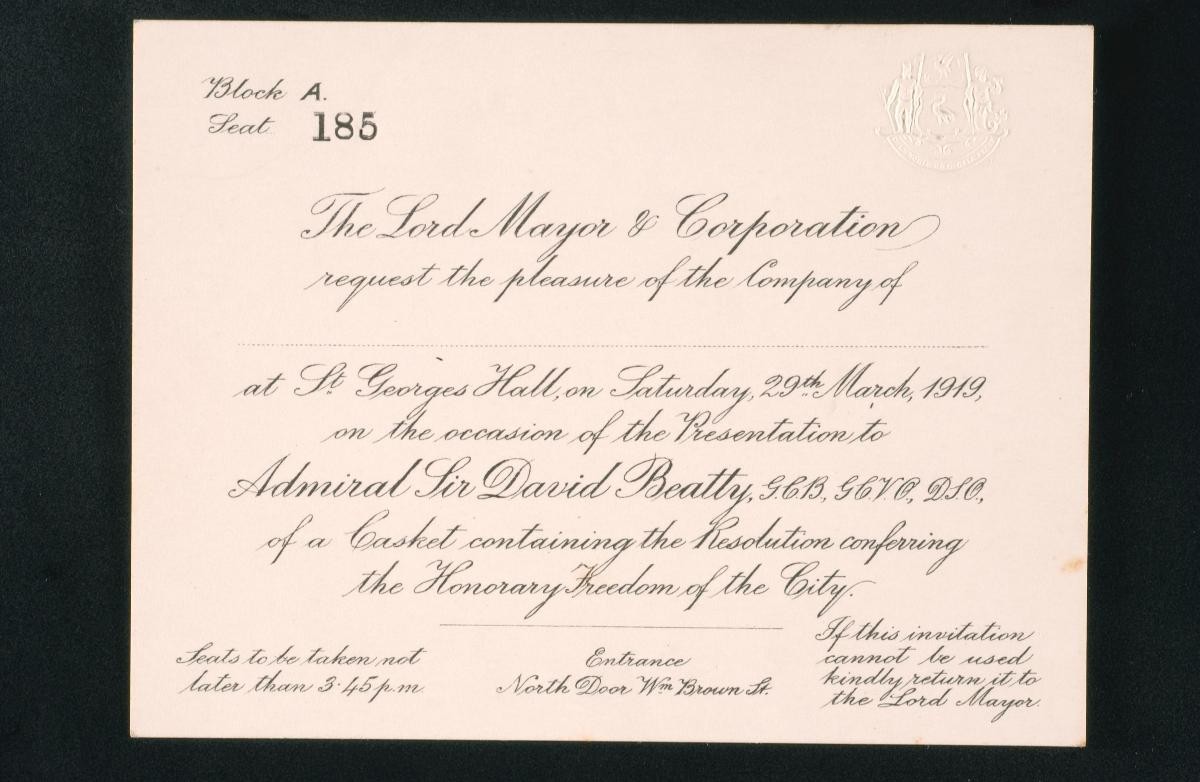 Block A.
Seat 185
The Lord Mayor & Corporation
request the pleasure of the Company of
at St. Georges Hall, on Saturday, 29th March, 1919,
on the occasion of the Presentation to
Admiral Sir David Beatty, G.C.B., G.C.V.O., D.S.O.,
of a Casket containing the Resolution conferring
the Honorary Freedom of the City.
Seats to be taken not
later than 3·45 p.m.
Entrance
North Door Wm Brown St.
If this invitation
cannot be used
kindly return it to
the Lord Mayor.